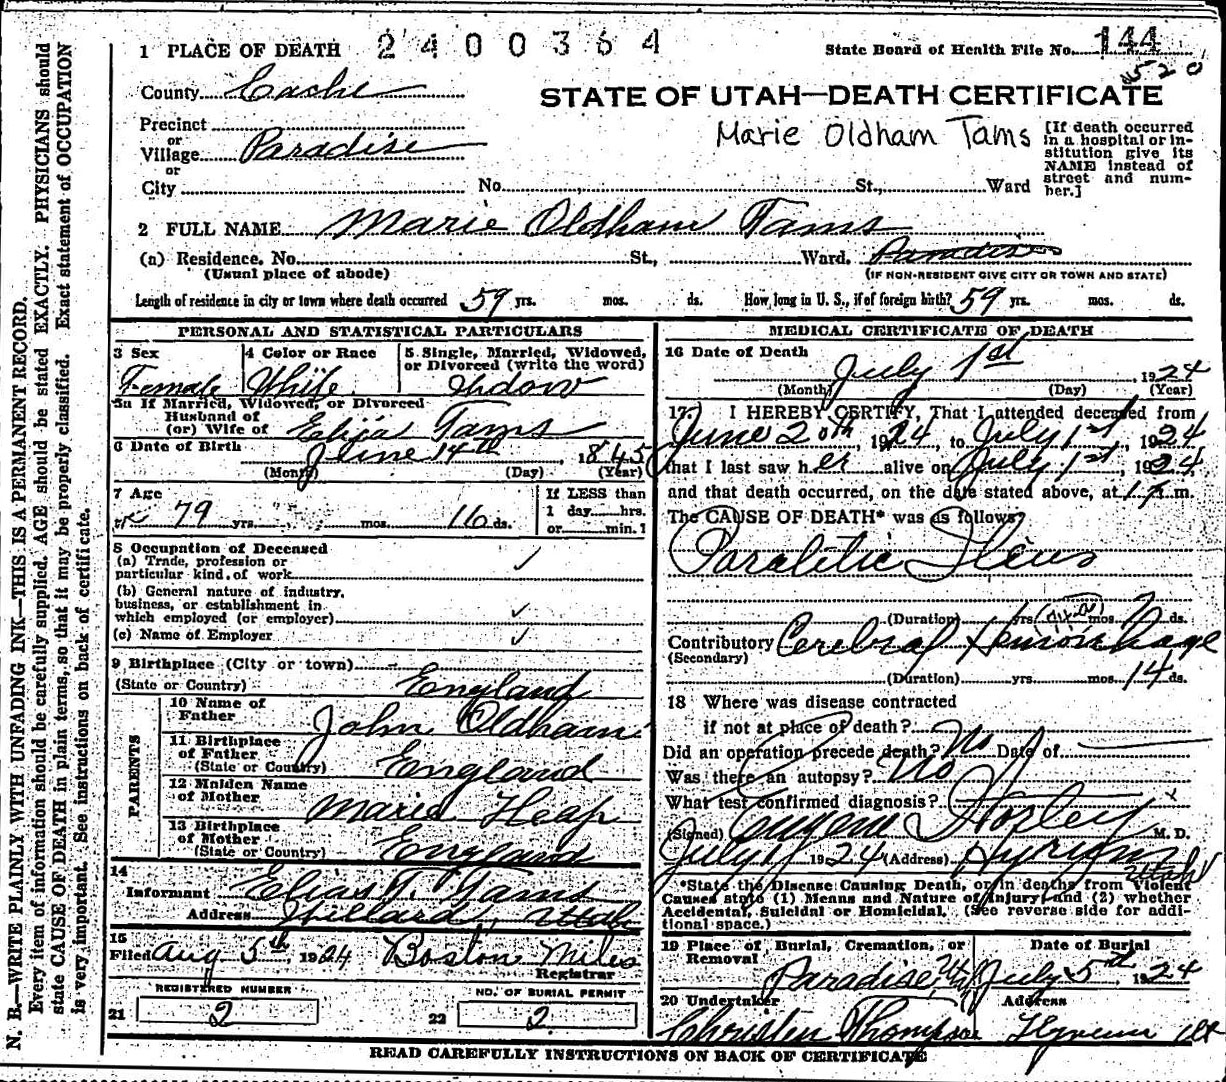 N. B.—WRITE PLAINLY WITH UNFADING INK—THIS IS A PERMANENT RECORD.
Every item of information should be carefully supplied. AGE should be stated EXACTLY. PHYSICIANS should
state CAUSE OF DEATH in plain terms, so that it may be properly classified. Exact statement of OCCUPATION
is very important. See instructions on back of certificate.
1 PLACE OF DEATH 2400364 State Board of Health File No. 144
520
County Cache
STATE OF UTAH—DEATH CERTIFICATE
Precinct
or
Village Paradise
or
City No. St., Ward
Marie Oldham Tams
[If death occurred
in a hospital or in-
stitution give its
NAME instead of
street and num-
ber.]
2 FULL NAME Marie Oldham Tams
(a) Residence. No. St., Ward. Paradise
(Usual place of abode) (IF NON-RESIDENT GIVE CITY OR TOWN AND STATE)
Length of residence in city or town where death occurred 59 yrs. mos. ds. How long in U. S., if of foreign birth? 59 yrs. mos. ds.
PERSONAL AND STATISTICAL PARTICULARS
3 Sex 4 Color or Race 5 Single, Married, Widowed,
or Divorced (write the word)
Female White Widow
5a If Married, Widowed, or Divorced
Husband of
(or) Wife of Elias Tams
6 Date of Birth June 14th, 1845
(Month) (Day) (Year)
7 Age If LESS than
79 yrs. mos. 16 ds. 1 day hrs.
or min.?
8 Occupation of Deceased
(a) Trade, profession or
particular kind of work
(b) General nature of industry,
business, or establishment in
which employed (or employer)
(c) Name of Employer
9 Birthplace (City or town)
(State or Country) England
PARENTS
10 Name of
Father John Oldham
11 Birthplace
of Father
(State or Country) England
12 Maiden Name
of Mother Maria Heap
13 Birthplace
of Mother
(State or Country) England
14
Informant Elias T. Tams
Address Willard, Utah
15
Filed Aug 5th, 1924 Boston Miles
Registrar
REGISTERED NUMBER NO. OF BURIAL PERMIT
21 2 22 2
MEDICAL CERTIFICATE OF DEATH
16 Date of Death
July 1st, 1924
(Month) (Day) (Year)
17. I HEREBY CERTIFY, That I attended deceased from
June 20th, 1924, to July 1st, 1924
that I last saw her alive on July 1st, 1924
and that death occurred, on the date stated above, at m.
The CAUSE OF DEATH* was as follows:
Paralitic Ileus
(Duration) yrs. mos. ds.
Contributory Cerebral Hemorrhage
(Secondary)
(Duration) yrs. mos. 14 ds.
18 Where was disease contracted
if not at place of death?
Did an operation precede death? No Date of
Was there an autopsy? No
What test confirmed diagnosis?
(Signed) Eugene Worley M. D.
July 1924 (Address) Hyrum
Utah
*State the Disease Causing Death, or in deaths from Violent
Causes state (1) Means and Nature of Injury and (2) whether
Accidental, Suicidal or Homicidal. (See reverse side for addi-
tional space.)
19 Place of Burial, Cremation, or Date of Burial
Removal
Paradise July 5th, 1924
20 Undertaker Address
Thompson Hyrum Ut
READ CAREFULLY INSTRUCTIONS ON BACK OF CERTIFICATE